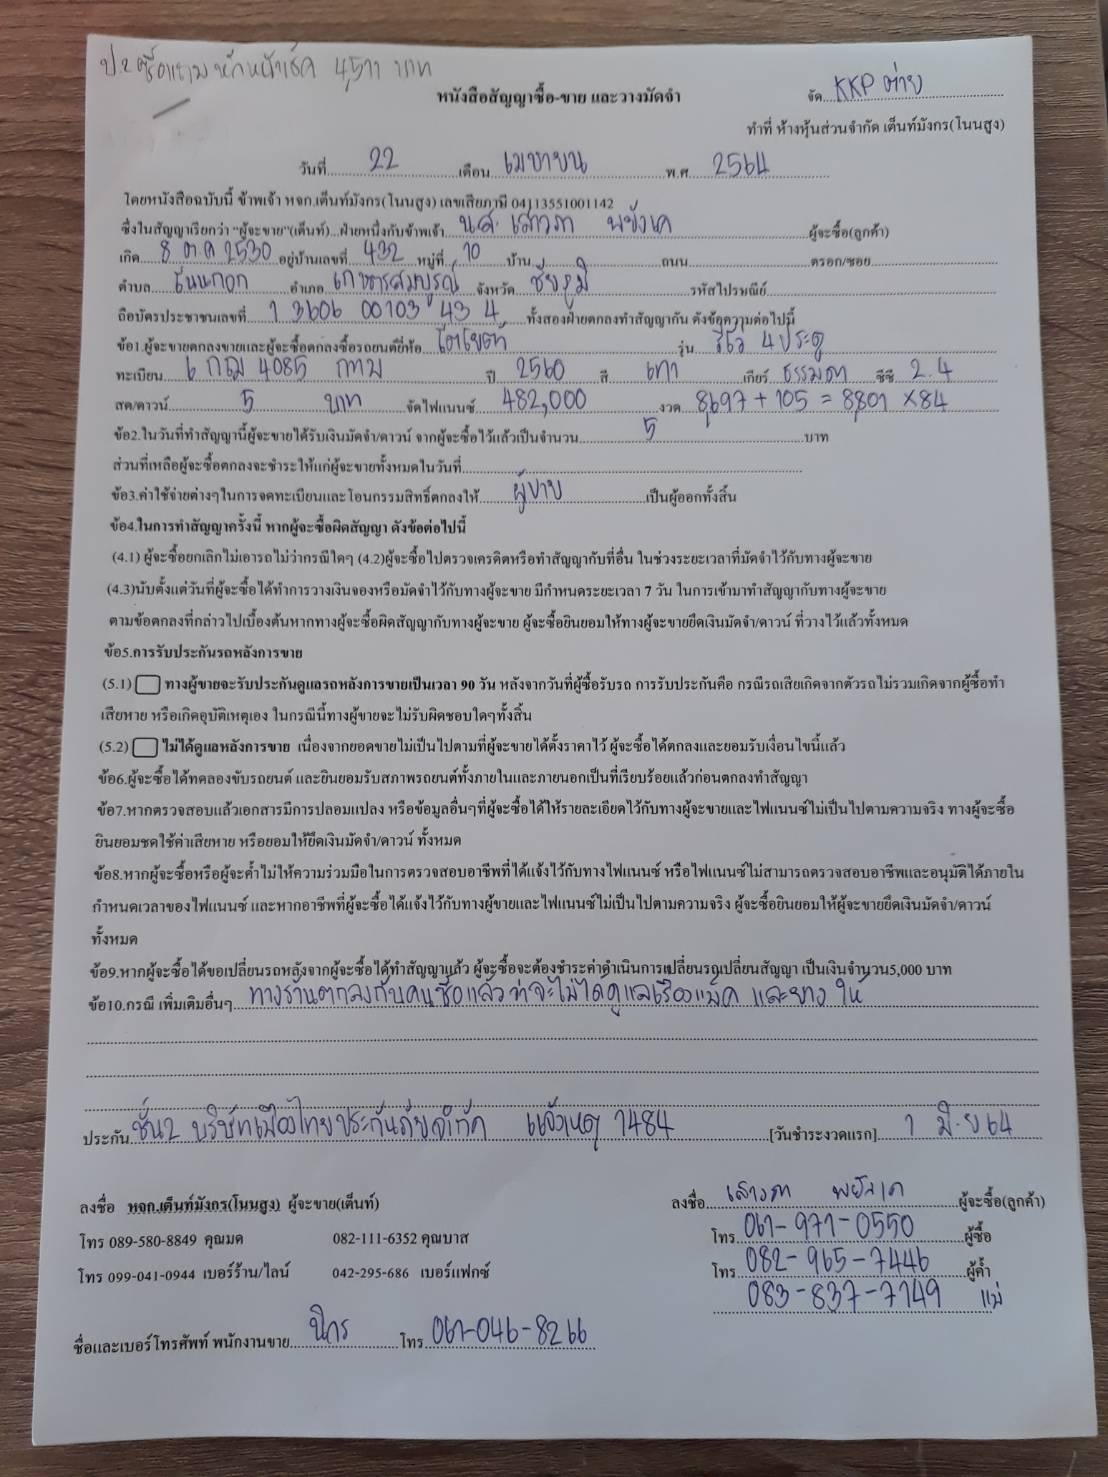 หักหน้าเช็ค 4,500 บาท
หนังสือสัญญาซื้อ-ขาย และวางมัดจำ
จัด KKP ต่าย
ทำที่ ห้างหุ้นส่วนจำกัด เต็นท์มังกร(โนนสูง)
วันที่ 22 เดือน เมษายน พ.ศ 2564
โดยหนังสือฉบับนี้ ข้าพเจ้า หจก.เต็นท์มังกร(โนนสูง) เลขเสียภาษี 04113551001142
ซึ่งในสัญญาเรียกว่า "ผู้จะขาย"(เต็นท์)...ฝ่ายหนึ่งกับข้าพเจ้า น.ส. เสาวภา ผู้จะซื้อ(ลูกค้า)
เกิด 8 ต.ค 2530 อยู่บ้านเลขที่ 432 หมู่ที่ 10 บ้าน ถนน ตรอก/ซอย
ตำบล โนนกอก อำเภอ เกษตรสมบูรณ์ จังหวัด ชัยภูมิ รหัสไปรษณีย์
ถือบัตรประชาชนเลขที่ 1 3606 00103 43 4 ทั้งสองฝ่ายตกลงทำสัญญากัน ดังข้อความต่อไปนี้
ข้อ1.ผู้จะขายตกลงขายและผู้จะซื้อตกลงซื้อรถยนต์ยี่ห้อ โตโยต้า รุ่น รีโว่ 4 ประตู
ทะเบียน 6 กฌ 4085 กทม ปี 2560 สี เทา เกียร์ ธรรมดา ซีซี 2.4
สด/ดาวน์ 5 บาท จัดไฟแนนซ์ 482,000 งวด 8,697 + 105 = 8,801 x84
ข้อ2.ในวันที่ทำสัญญานี้ผู้จะขายได้รับเงินมัดจำ/ดาวน์ จากผู้จะซื้อไว้แล้วเป็นจำนวน 5 บาท
ส่วนที่เหลือผู้จะซื้อตกลงจะชำระให้แก่ผู้จะขายทั้งหมดในวันที่
ข้อ3.ค่าใช้จ่ายต่างๆในการจดทะเบียนและโอนกรรมสิทธิ์ตกลงให้ ผู้ขาย เป็นผู้ออกทั้งสิ้น
ข้อ4.ในการทำสัญญาครั้งนี้ หากผู้จะซื้อผิดสัญญา ดังข้อต่อไปนี้
(4.1) ผู้จะซื้อยกเลิกไม่เอารถไม่ว่ากรณีใดๆ (4.2)ผู้จะซื้อไปตรวจเครดิตหรือทำสัญญากับที่อื่น ในช่วงระยะเวลาที่มัดจำไว้กับทางผู้จะขาย
(4.3)นับตั้งแต่วันที่ผู้จะซื้อได้ทำการวางเงินจองหรือมัดจำไว้กับทางผู้จะขาย มีกำหนดระยะเวลา 7 วัน ในการเข้ามาทำสัญญากับทางผู้จะขาย
ตามข้อตกลงที่กล่าวไปเบื้องต้นหากทางผู้จะซื้อผิดสัญญากับทางผู้จะขาย ผู้จะซื้อยินยอมให้ทางผู้จะขายยึดเงินมัดจำ/ดาวน์ ที่วางไว้แล้วทั้งหมด
ข้อ5.การรับประกันรถหลังการขาย
(5.1) ทางผู้ขายจะรับประกันดูแลรถหลังการขายเป็นเวลา 90 วัน หลังจากวันที่ผู้ซื้อรับรถ การรับประกันคือ กรณีรถเสียเกิดจากตัวรถไม่รวมเกิดจากผู้ซื้อทำ
เสียหาย หรือเกิดอุบัติเหตุเอง ในกรณีนี้ทางผู้ขายจะไม่รับผิดชอบใดๆทั้งสิ้น
(5.2) ไม่ได้ดูแลหลังการขาย เนื่องจากยอดขายไม่เป็นไปตามที่ผู้จะขายได้ตั้งราคาไว้ ผู้จะซื้อได้ตกลงและยอมรับเงื่อนไขนี้แล้ว
ข้อ6.ผู้จะซื้อได้ทดลองขับรถยนต์ และยินยอมรับสภาพรถยนต์ทั้งภายในและภายนอกเป็นที่เรียบร้อยแล้วก่อนตกลงทำสัญญา
ข้อ7.หากตรวจสอบแล้วเอกสารมีการปลอมแปลง หรือข้อมูลอื่นๆที่ผู้จะซื้อได้ให้รายละเอียดไว้กับทางผู้จะขายและไฟแนนซ์ไม่เป็นไปตามความจริง ทางผู้จะซื้อ
ยินยอมชดใช้ค่าเสียหาย หรือยอมให้ยึดเงินมัดจำ/ดาวน์ ทั้งหมด
ข้อ8.หากผู้จะซื้อหรือผู้จะค้ำไม่ให้ความร่วมมือในการตรวจสอบอาชีพที่ได้แจ้งไว้กับทางไฟแนนซ์ หรือไฟแนนซ์ไม่สามารถตรวจสอบอาชีพและอนุมัติได้ภายใน
กำหนดเวลาของไฟแนนซ์ และหากอาชีพที่ผู้จะซื้อได้แจ้งไว้กับทางผู้ขายและไฟแนนซ์ไม่เป็นไปตามความจริง ผู้จะซื้อยินยอมให้ผู้จะขายยึดเงินมัดจำ/ดาวน์
ทั้งหมด
ข้อ9.หากผู้จะซื้อได้ขอเปลี่ยนรถหลังจากผู้จะซื้อได้ทำสัญญาแล้ว ผู้จะซื้อจะต้องชำระค่าดำเนินการเปลี่ยนรถเปลี่ยนสัญญา เป็นเงินจำนวน5,000 บาท
ข้อ10.กรณี เพิ่มเติมอื่นๆ ทางร้านตกลงกับคนซื้อแล้วว่าจะไม่ได้ดูแลเรื่องแม็ค และยาง ให้
ประกัน ชั้น2 บริษัทเมืองไทยประกันภัยจำกัด แจ้งเหตุ 1484 [วันชำระงวดแรก] 1 มิ.ย 64
ลงชื่อ หจก.เต็นท์มังกร(โนนสูง) ผู้จะขาย(เต็นท์)
ลงชื่อ เสาวภา ผู้จะซื้อ(ลูกค้า)
โทร 089-580-8849 คุณมด 082-111-6352 คุณบาส
โทร 061-971-0550 ผู้ซื้อ
โทร 099-041-0944 เบอร์ร้าน/ไลน์ 042-295-686 เบอร์แฟกซ์
โทร 082-965-7446 ผู้ค้ำ
083-837-7149 แม่
ชื่อและเบอร์โทรศัพท์ พนักงานขาย นิกร โทร 061-046-8266